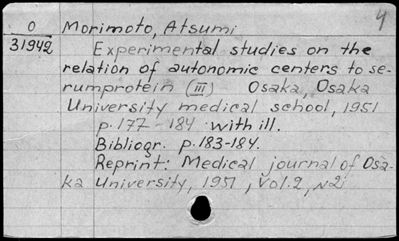 4
O Morimoto, Atsumi
31942 Experimental studies on the
relation of autonomic centers to se-
rumprotein (III) Osaka, Osaka
University medical school, 1951
p. 177-184 with ill.
Bibliogr. p. 183-184.
Reprint: Medical journal of Osa-
ka University, 1951, Vol. 2, N2